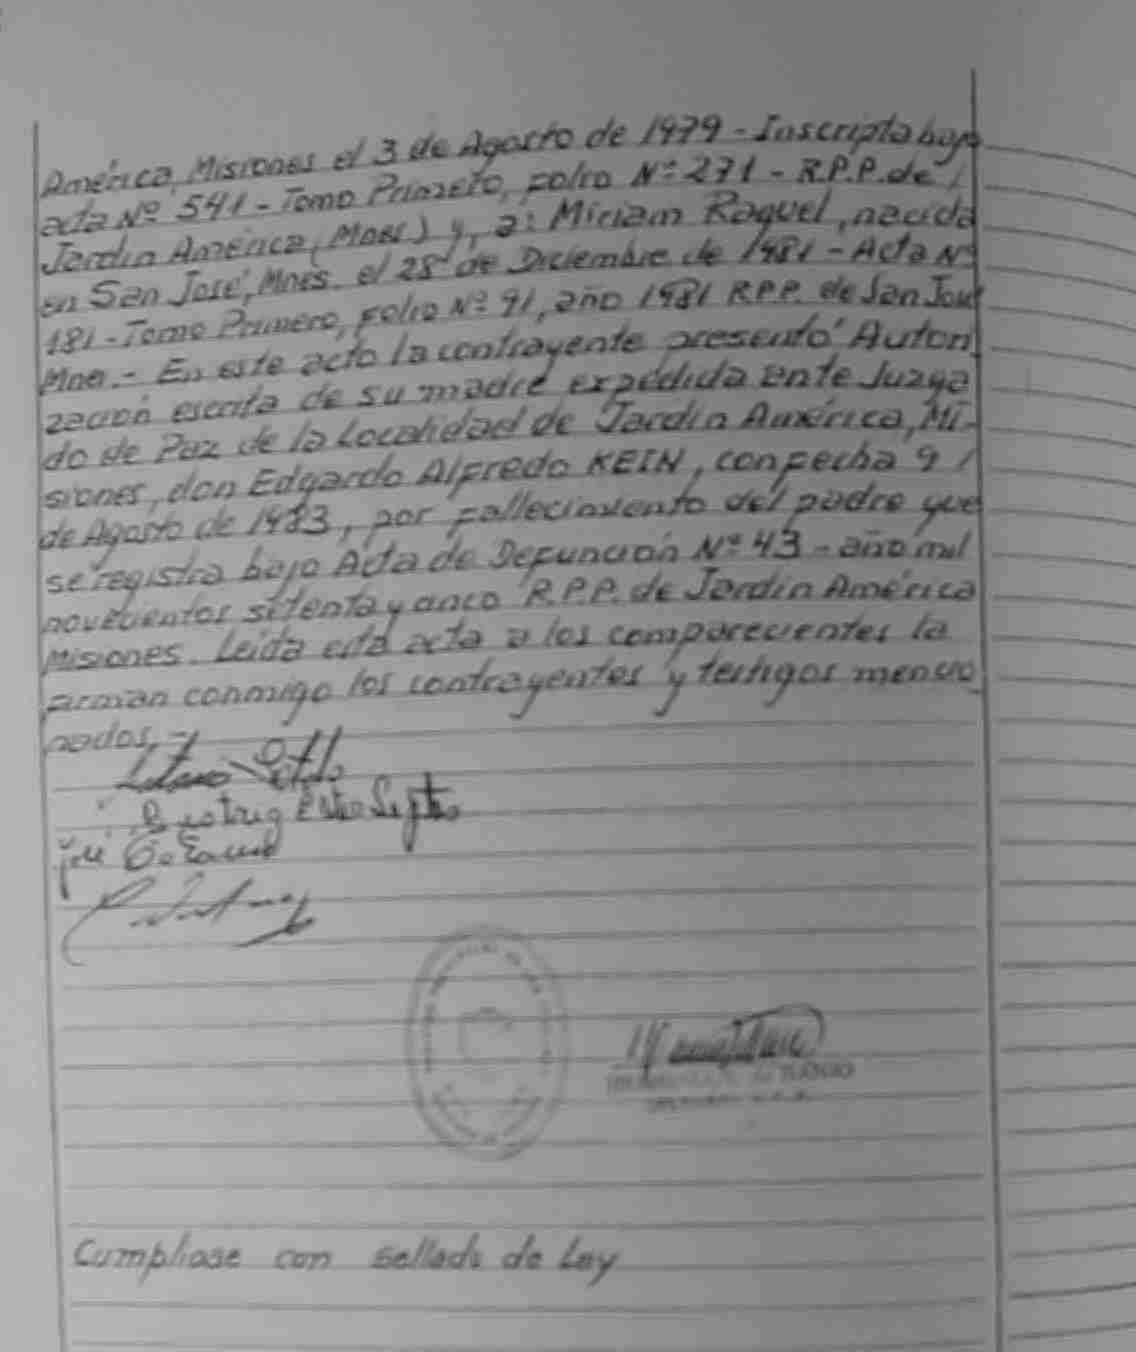 América, Misiones el 3 de Agosto de 1979 - Inscripta bajo
acta Nº 541 - Tomo Primero, folio Nº 271 - R.P.P. de /
Jardín América (Mnes) y, a: Miriam Raquel, nacida
en San José, Mnes. el 28 de Diciembre de 1981 - Acta Nº
181 - Tomo Primero, folio Nº 91, año 1981 R.P.P. de San José
Mnes. - En este acto la contrayente presentó Autori
zación escrita de su madre expedida ante Juzga
do de Paz de la Localidad de Jardín América, Mi-
siones, don Edgardo Alfredo KEIN, con fecha 9 /
de Agosto de 1983, por fallecimiento del padre que
se registra bajo Acta de Defunción Nº 43 - año mil
novecientos setenta y cinco R.P.P. de Jardín América
Misiones. Leída esta acta a los comparecientes la
firman conmigo los contrayentes y testigos mencio
nados. -
Cumpliase con sellado de Ley